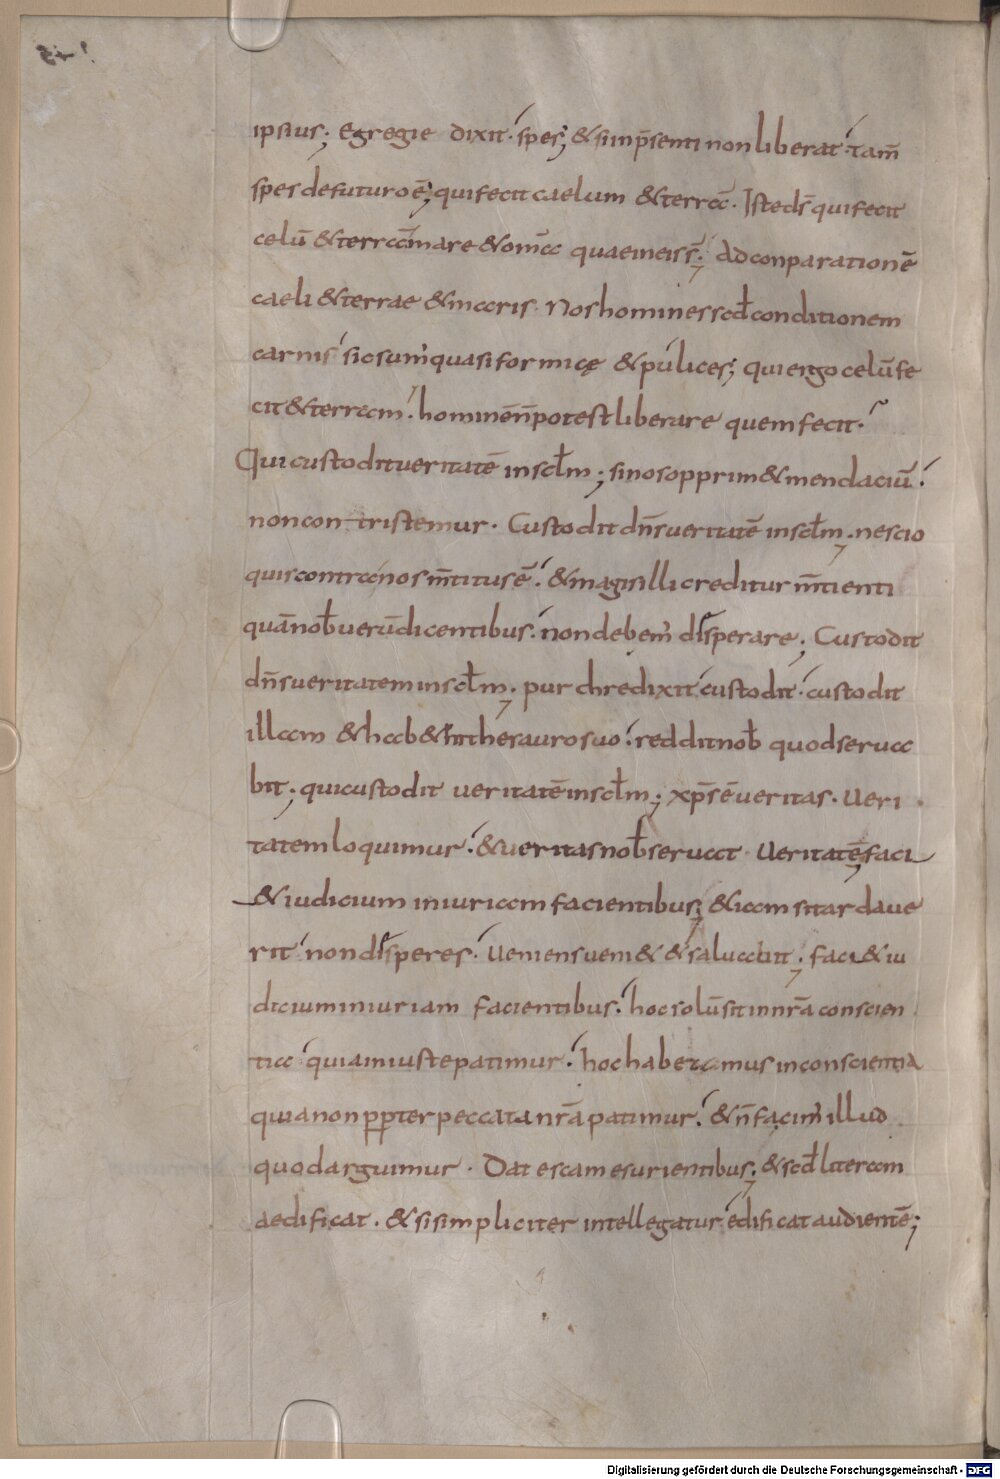 ipsius; Egregie dixit· spes; & si inp̄senti non liberat· tam̄
spes defuturo ē; qui fecit caelum & terra· Iste ds̄ qui fecit
celū & terrā mare & om̄a quae in eis s̄· Ad conparationē
caeli & terrae & maris· Nos homines scd̄ conditionem
carnis sic sum̄ quasi formicę & pulices; qui ergo celū fe
cit & terram· hominē n̄ potest liberare quem fecit·
Qui custodit ueritatē in sclm̄; si nos opprim& mendaciū·
non contristemur· Custodit dn̄s ueritatē in sclm̄· nescio
quis contra nos m̄titus ē· & magis illi creditur m̄tienti
quā nob̄ uerū dicentibus· non debem̄ disperare; Custodit
dn̄s ueritatem in sclm̄· pur chre dixit custodit· custodit
illam & hab& in thesauro suo· reddit nob̄ quod serua
bit; qui custodit ueritatē in sclm̄; xp̄s ē ueritas· Ueri
tatem loquimur· & ueritas nob̄ seruat· Ueritatē· faci
& iudicium iniuriam facientibus; & iam si tardaue
rit non disperes· Ueniens ueni& & saluabit· faci& iu
dicium iniuriam facientibus· hoc solū sit in nr̄a conscien
tia quia iniuste patimur· hoc habeamus in conscientia
quia non ppter peccata nr̄a patimur· & n̄ facim̄ illud
quod arguimur· Dat escam esurientibus; & scd̄ literam
aedificat· & si simpliciter intellegatur edificat audientē;
Digitalisierung gefördert durch die Deutsche Forschungsgemeinschaft - DFG